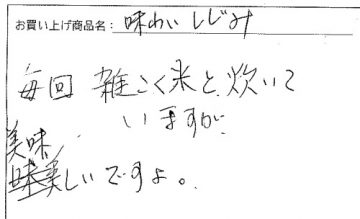 お買い上げ商品名: 味わいしじみ
毎回 雑こく米と、炊いて
いますが、
美味
しいですよ。